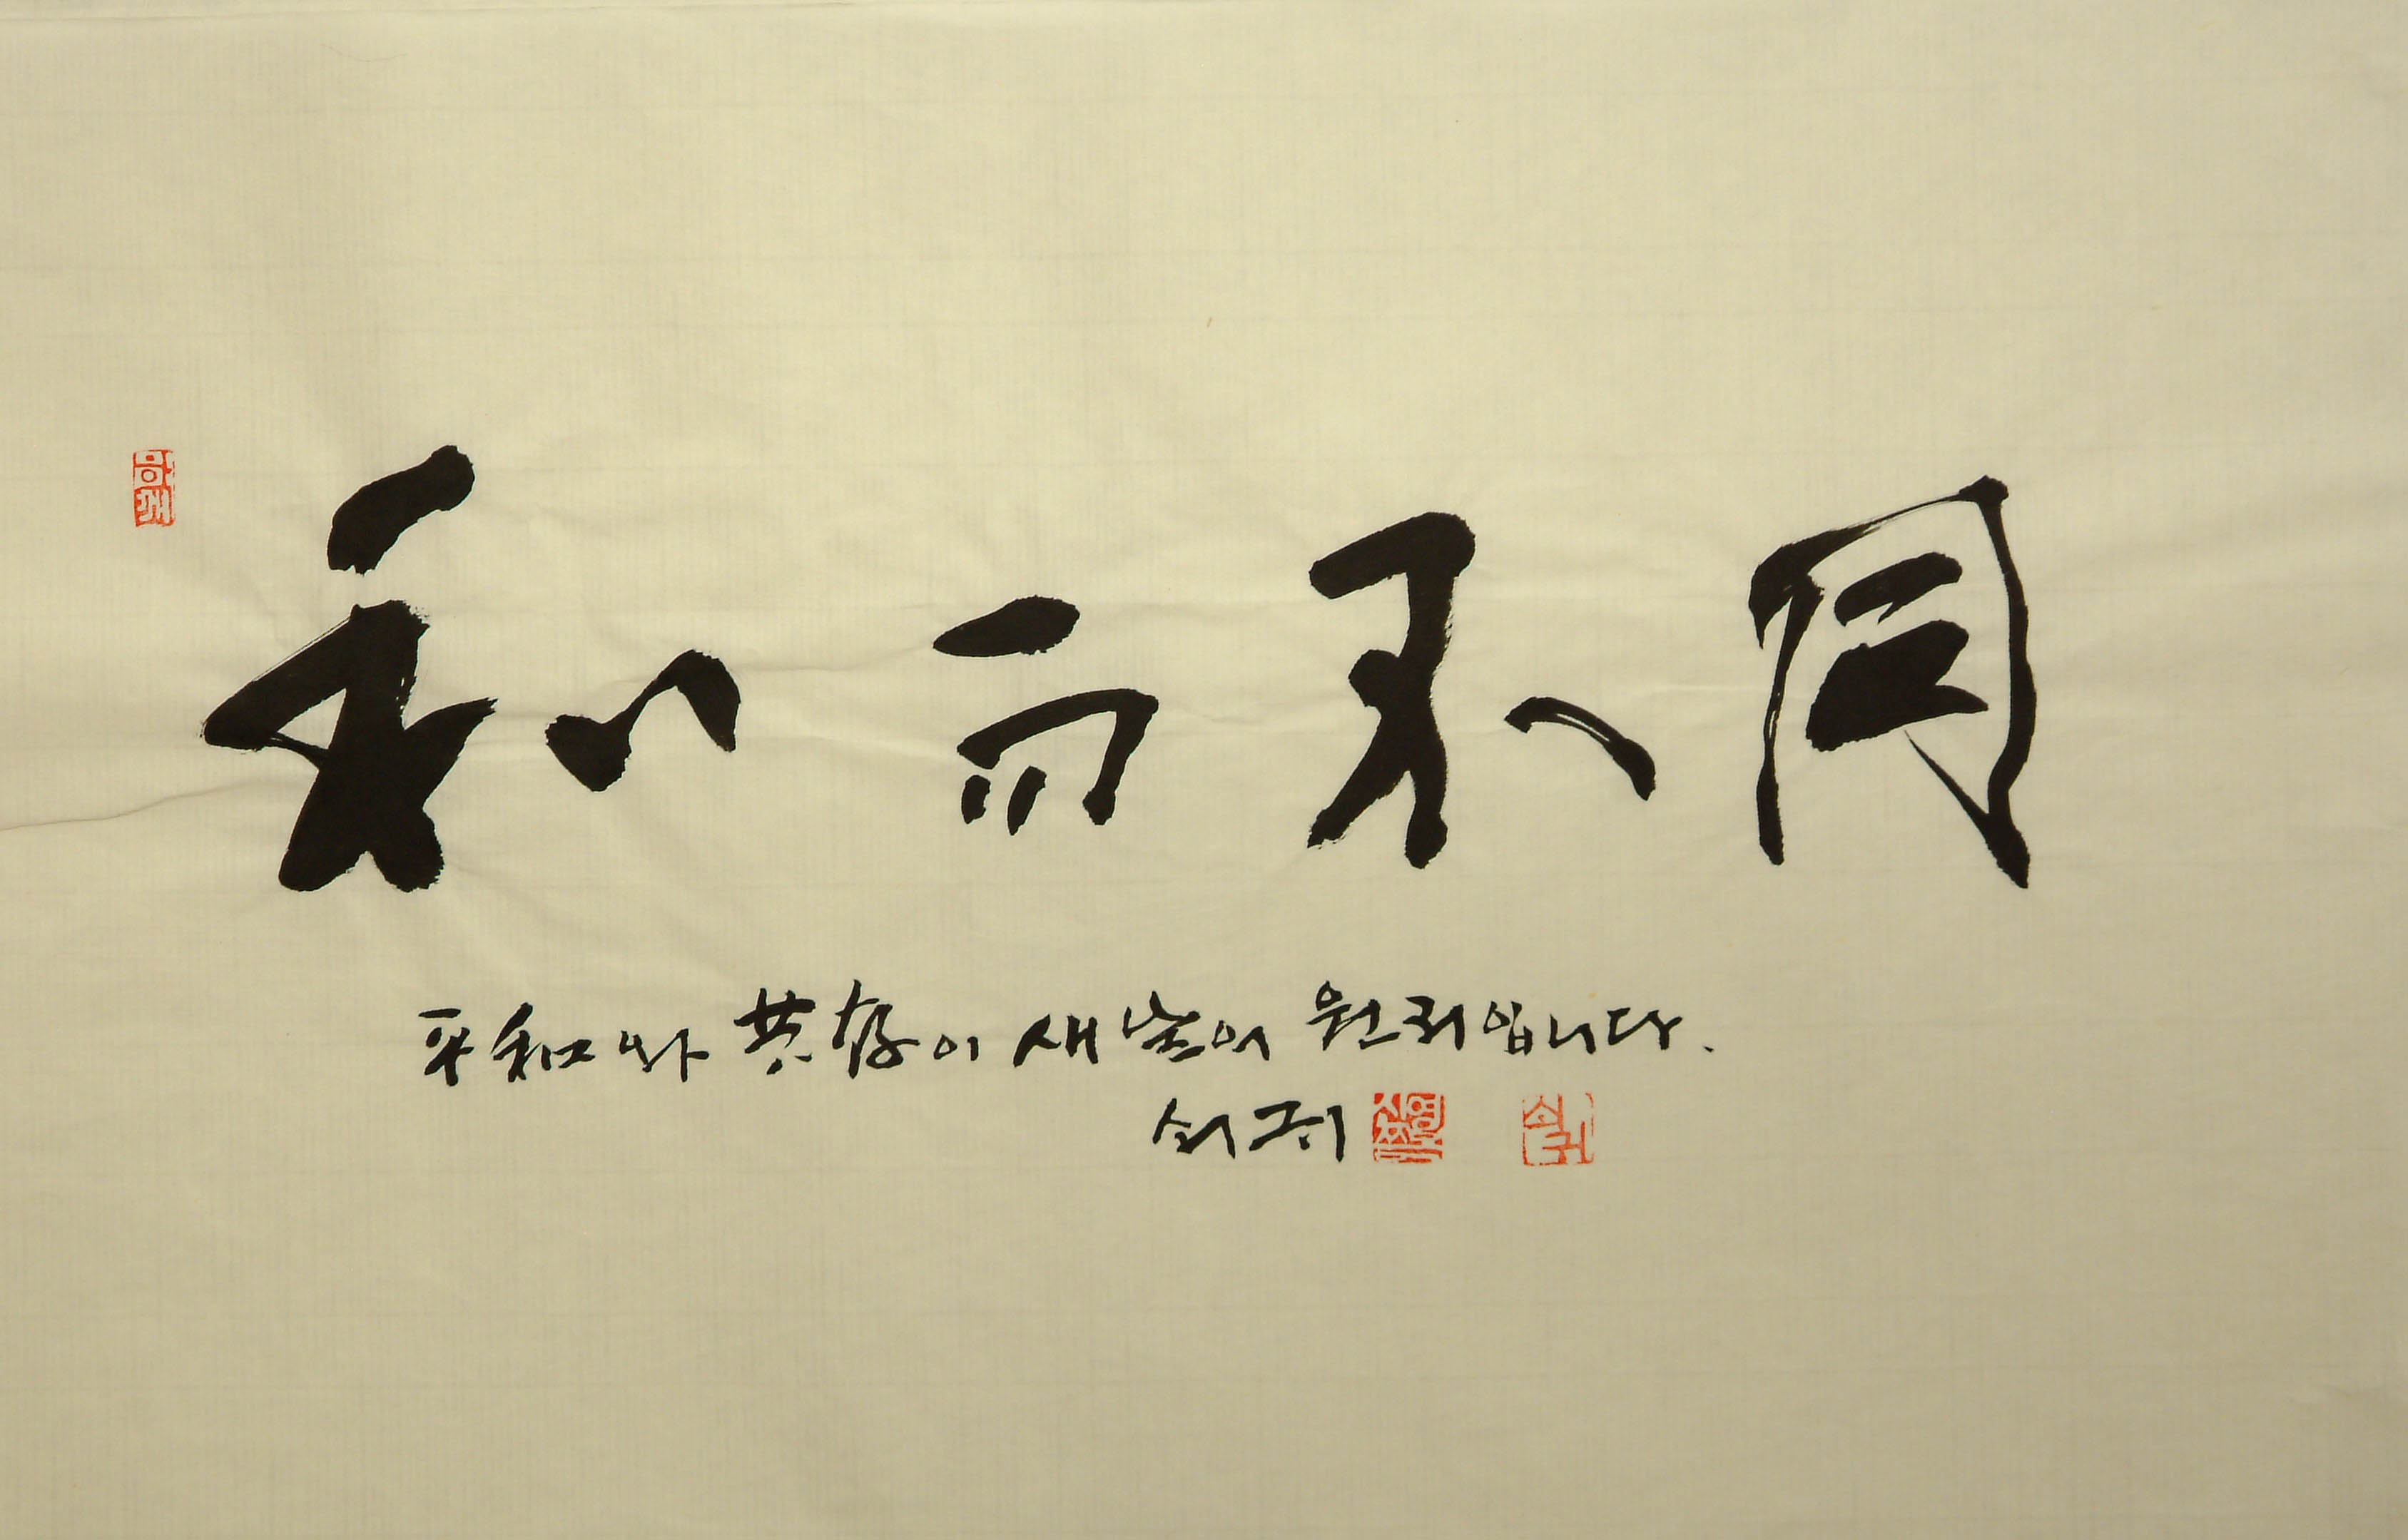 和而不同
平和와 共存이 새날의 원리입니다.
쇠귀
쇠귀